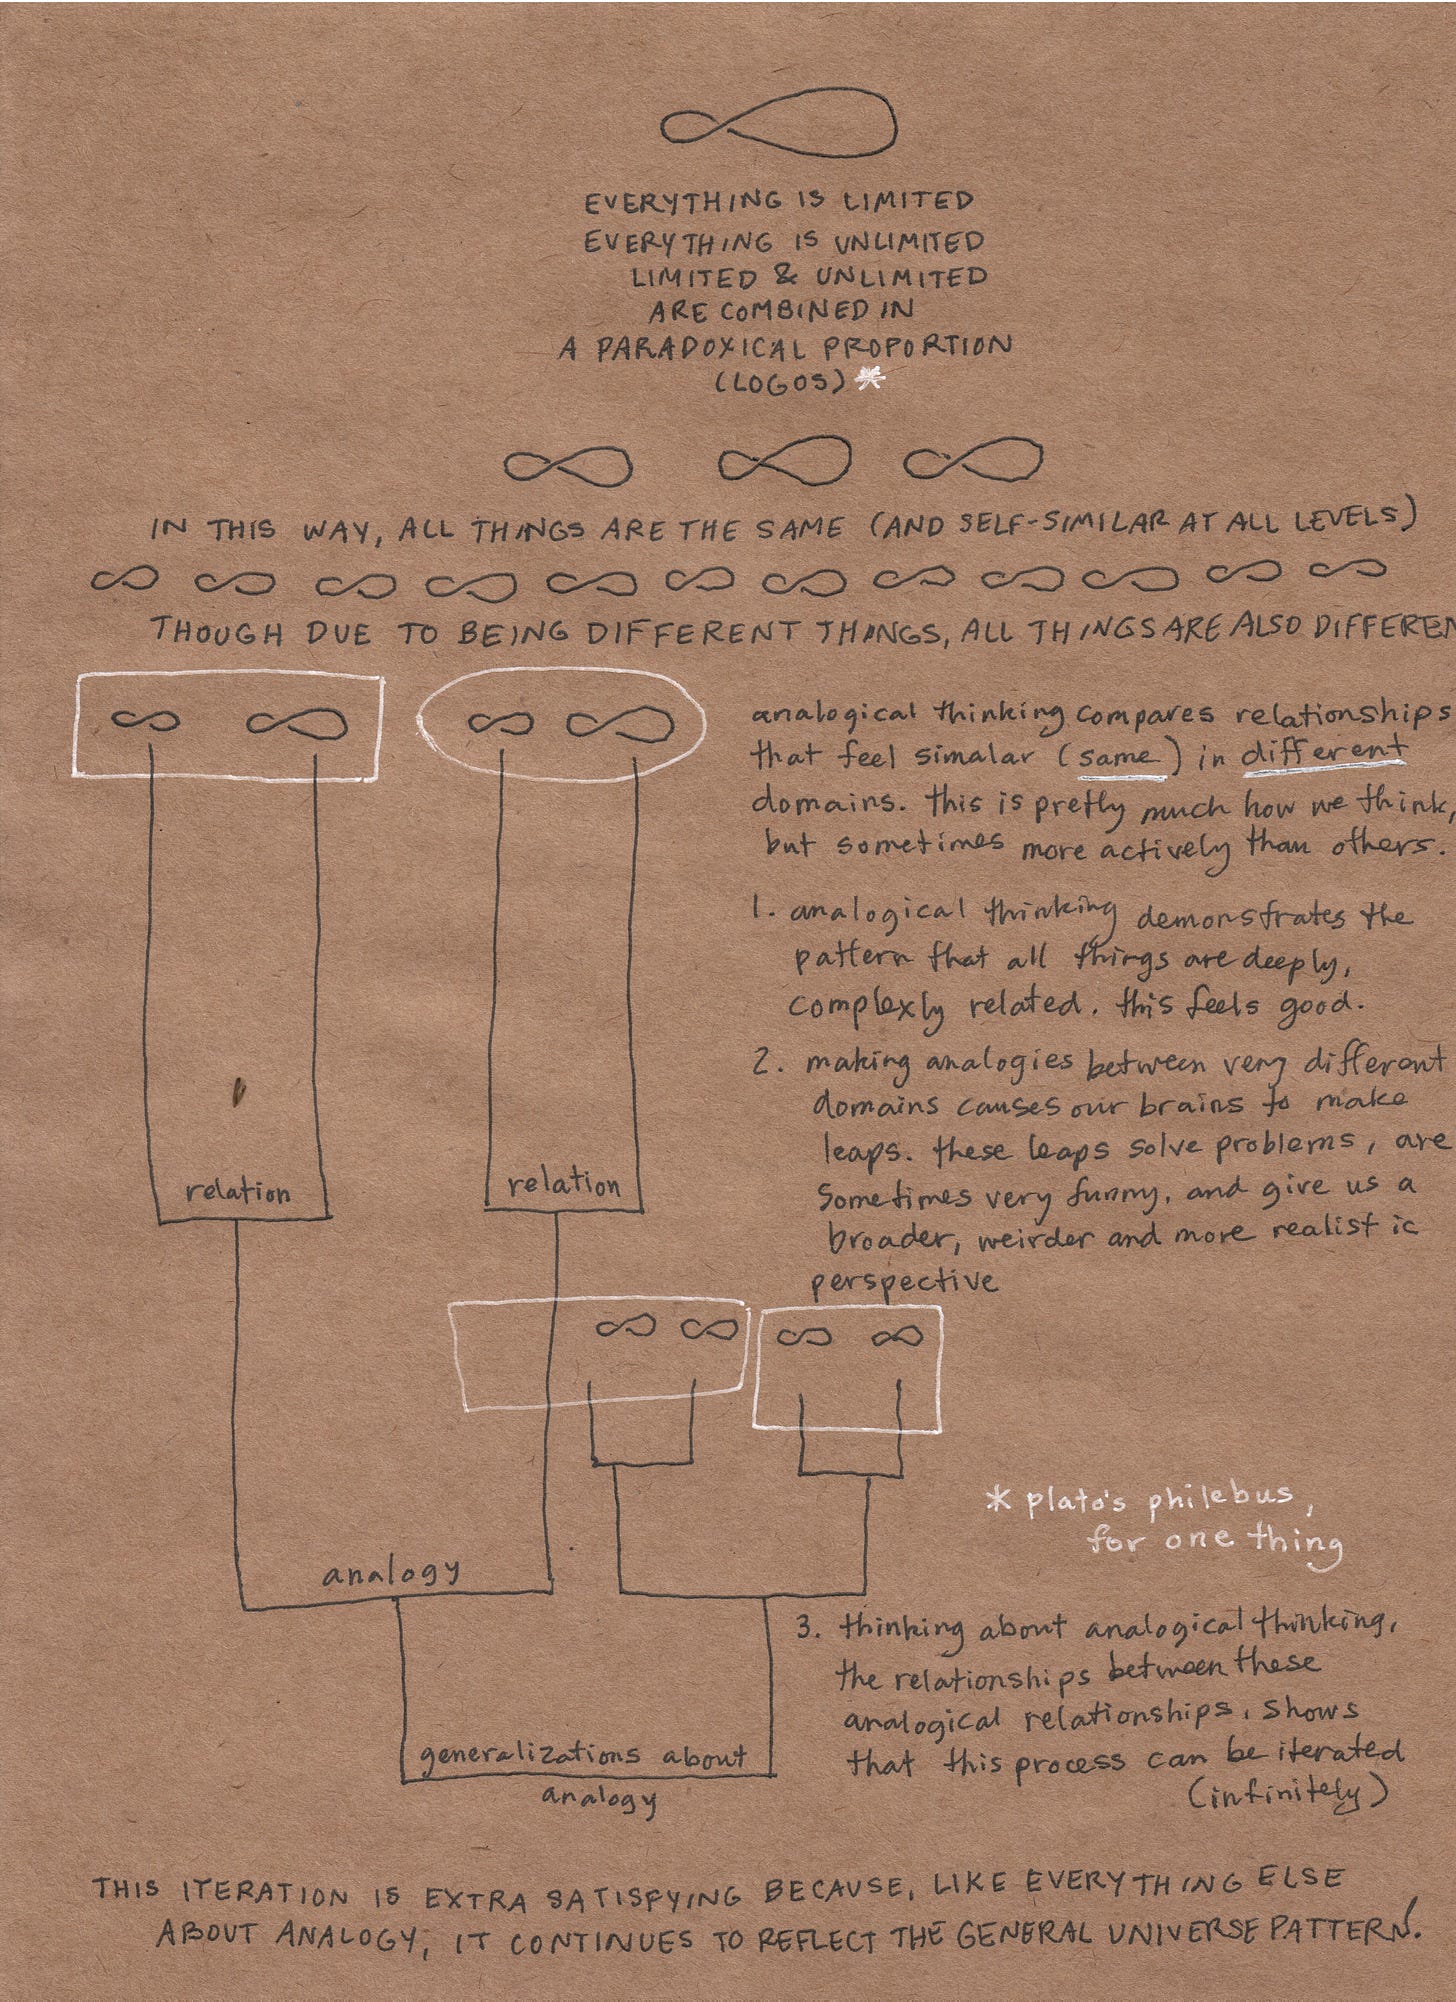 EVERYTHING IS LIMITED
EVERYTHING IS UNLIMITED
LIMITED & UNLIMITED
ARE COMBINED IN
A PARADOXICAL PROPORTION
(LOGOS) *
IN THIS WAY, ALL THINGS ARE THE SAME (AND SELF-SIMILAR AT ALL LEVELS)
THOUGH DUE TO BEING DIFFERENT THINGS, ALL THINGS ARE ALSO DIFFEREN
analogical thinking compares relationships
that feel simalar (same) in different
domains. this is pretty much how we think,
but sometimes more actively than others.
1. analogical thinking demonstrates the
pattern that all things are deeply,
complexly related. this feels good.
2. making analogies between very different
domains causes our brains to make
leaps. these leaps solve problems, are
sometimes very funny, and give us a
broader, weirder and more realistic
perspective
relation
relation
* plato's philebus,
for one thing
analogy
3. thinking about analogical thinking,
the relationships between these
analogical relationships, shows
that this process can be iterated
(infinitely)
generalizations about
analogy
THIS ITERATION IS EXTRA SATISFYING BECAUSE, LIKE EVERYTHING ELSE
ABOUT ANALOGY, IT CONTINUES TO REFLECT THE GENERAL UNIVERSE PATTERN!